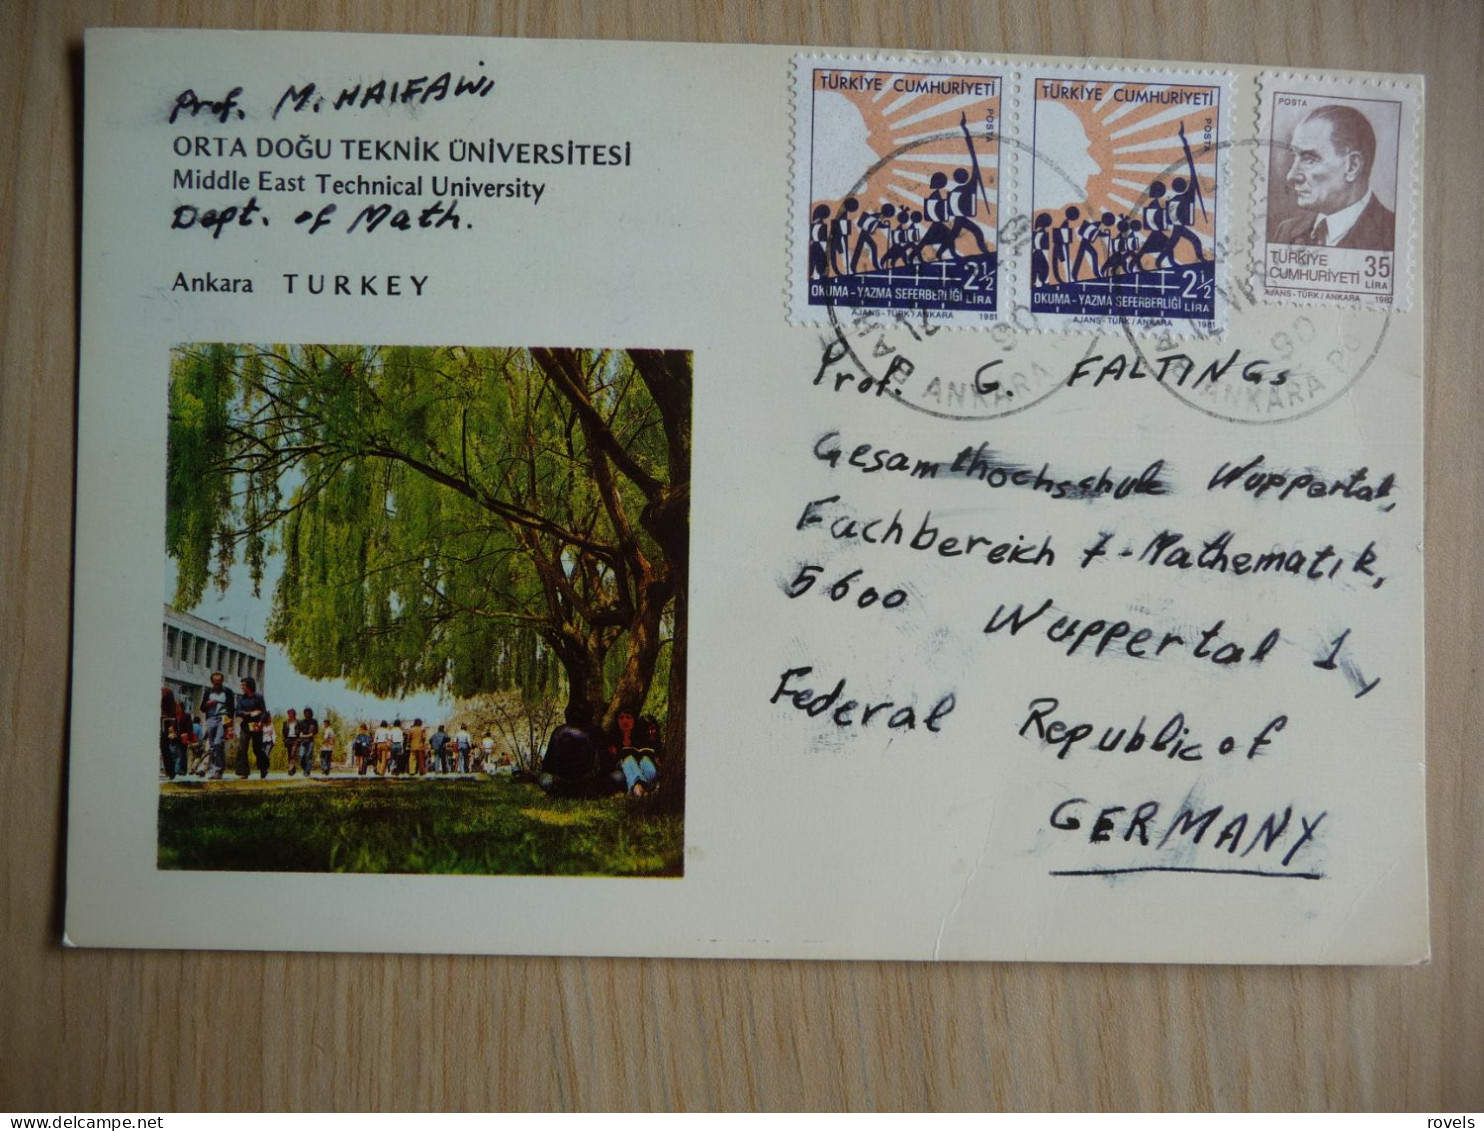 Prof. M. HAIFAWI
ORTA DOĞU TEKNİK ÜNİVERSİTESİ
Middle East Technical University
Dept. of Math.
Ankara TURKEY
TÜRKİYE CUMHURİYETİ
POSTA
2½
OKUMA-YAZMA SEFERBERLİĞİ LİRA
AJANS-TÜRK/ANKARA 1981
TÜRKİYE CUMHURİYETİ
POSTA
2½
OKUMA-YAZMA SEFERBERLİĞİ LİRA
AJANS-TÜRK/ANKARA 1981
POSTA
TÜRKİYE
CUMHURİYETİ
35
LİRA
AJANS-TÜRK/ANKARA 1982
ANKARA
90
ANKARA
90
Prof. G. FALTINGS
Gesamthochschule Wuppertal,
Fachbereich 7-Mathematik,
5600 Wuppertal 1,
Federal Republic of
GERMANY
rovels